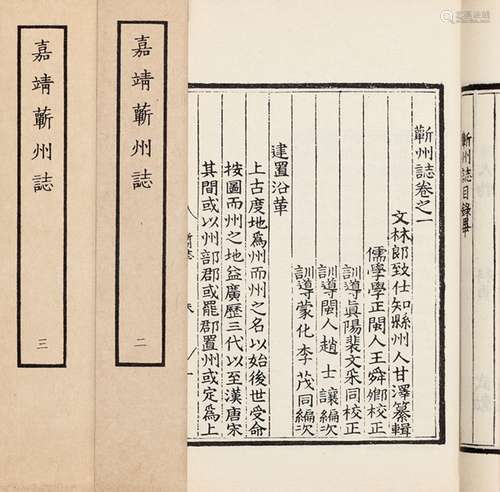 蘄州誌目錄畢
蘄州誌卷之一
文林郎致仕知縣州人甘澤纂輯
儒學學正閩人王舜鄉校正
訓導真陽裴文采同校正
訓導閩人趙士讓編次
訓導蒙化李茂同編次
建置沿革
上古度地為州而州之名以始後世受命
按圖而州之地益廣歷三代以至漢唐宋
其間或以州部郡或罷郡置州或定為上
嘉靖蘄州誌
二
嘉靖蘄州誌
三